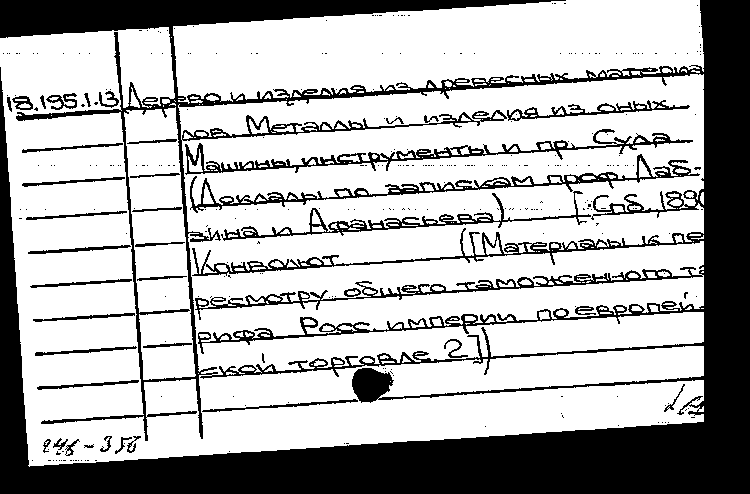 18.195.1.13 Дерево и изделия из древесных материа
лов. Металлы и изделия из оных.
Машины, инструменты и пр. Суда
(Доклады по запискам проф. Лаб-
зина и Афанасьева). [Спб., 1890
Конволют ([Материалы к пе
ресмотру общего таможенного та
рифа Росс. империи по европей-
ской торговле. 2])